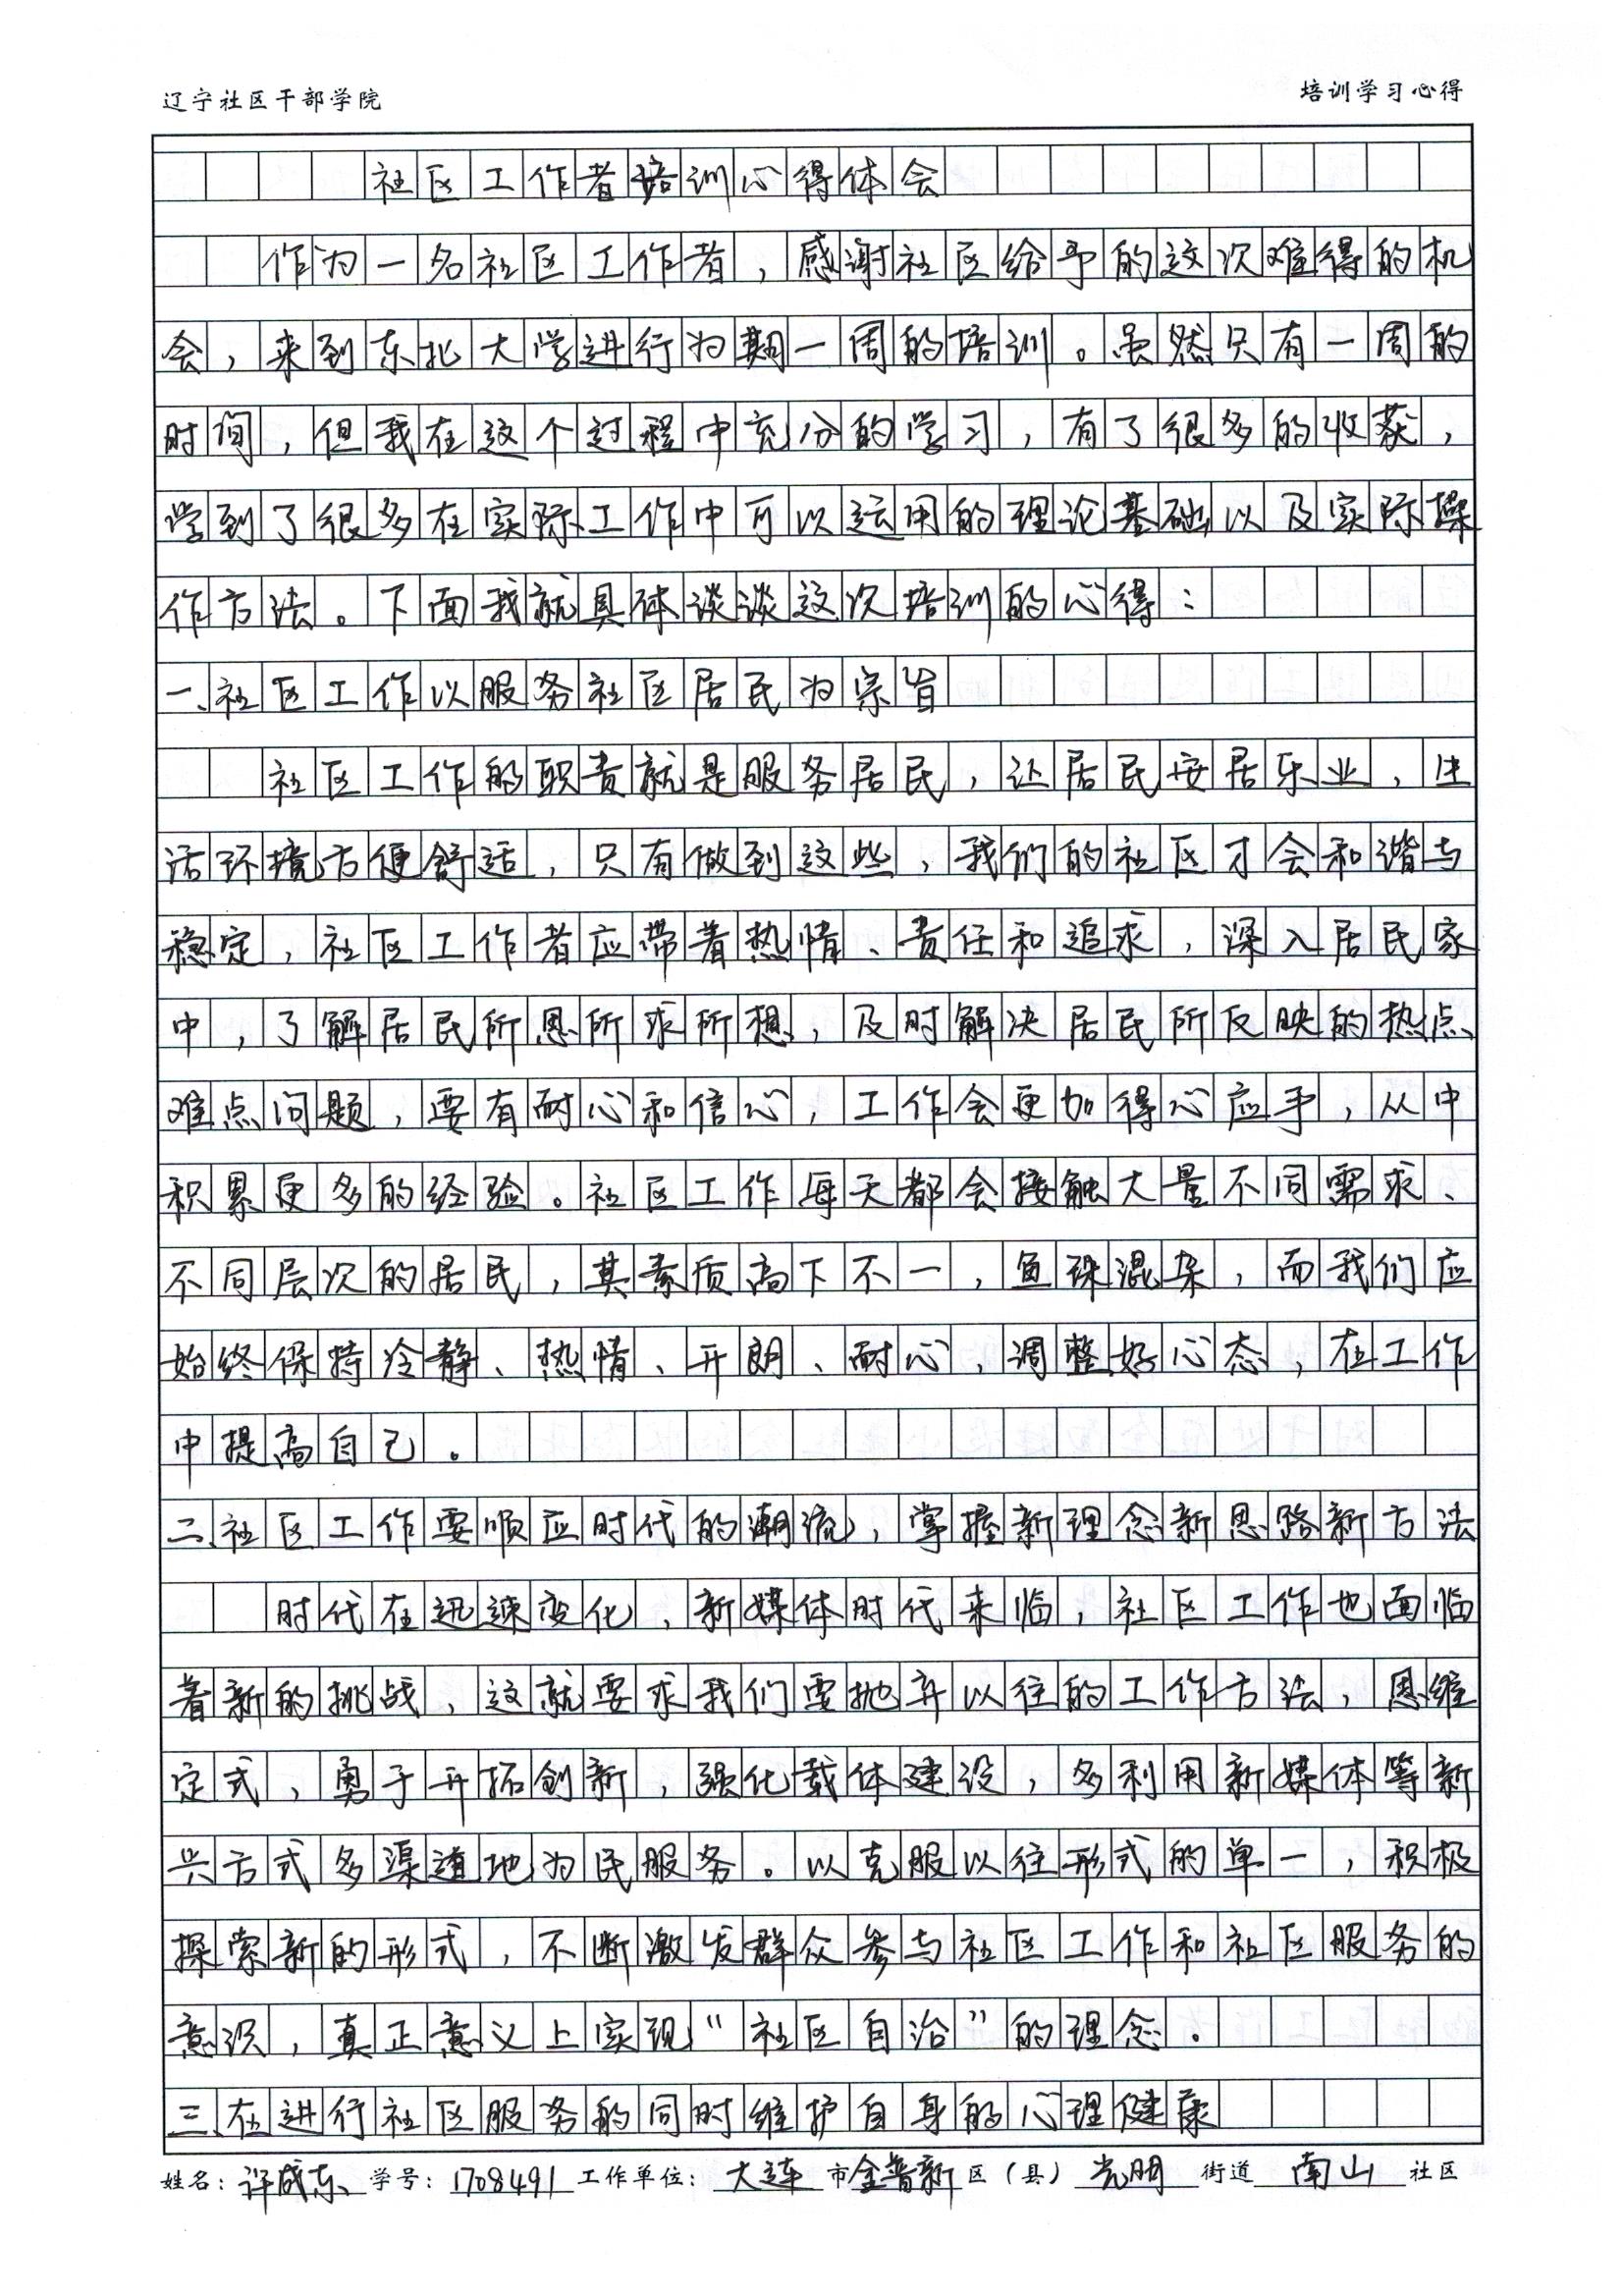 辽宁社区干部学院
培训学习心得
社区工作者培训心得体会
作为一名社区工作者，感谢社区给予的这次难得的机
会，来到东北大学进行为期一周的培训。虽然只有一周的
时间，但我在这个过程中充分的学习，有了很多的收获，
学到了很多在实际工作中可以运用的理论基础以及实际操
作方法。下面我就具体谈谈这次培训的心得：
一、社区工作以服务社区居民为宗旨
社区工作的职责就是服务居民，让居民安居乐业，生
活环境方便舒适，只有做到这些，我们的社区才会和谐与
稳定，社区工作者应带着热情、责任和追求，深入居民家
中，了解居民所思所求所想，及时解决居民所反映的热点
难点问题，要有耐心和信心，工作会更加得心应手，从中
积累更多的经验。社区工作每天都会接触大量不同需求、
不同层次的居民，其素质高下不一，鱼珠混杂，而我们应
始终保持冷静、热情、开朗、耐心，调整好心态，在工作
中提高自己。
二、社区工作要顺应时代的潮流，掌握新理念新思路新方法
时代在迅速变化，新媒体时代来临，社区工作也面临
着新的挑战，这就要求我们要抛弃以往的工作方法，思维
定式，勇于开拓创新，强化载体建设，多利用新媒体等新
兴方式多渠道地为民服务。以克服以往形式的单一，积极
探索新的形式，不断激发群众参与社区工作和社区服务的
意识，真正意义上实现“社区自治”的理念。
三、在进行社区服务的同时维护自身的心理健康
姓名：许成东 学号：1708491 工作单位：大连市金普新区（县）光明街道南山社区